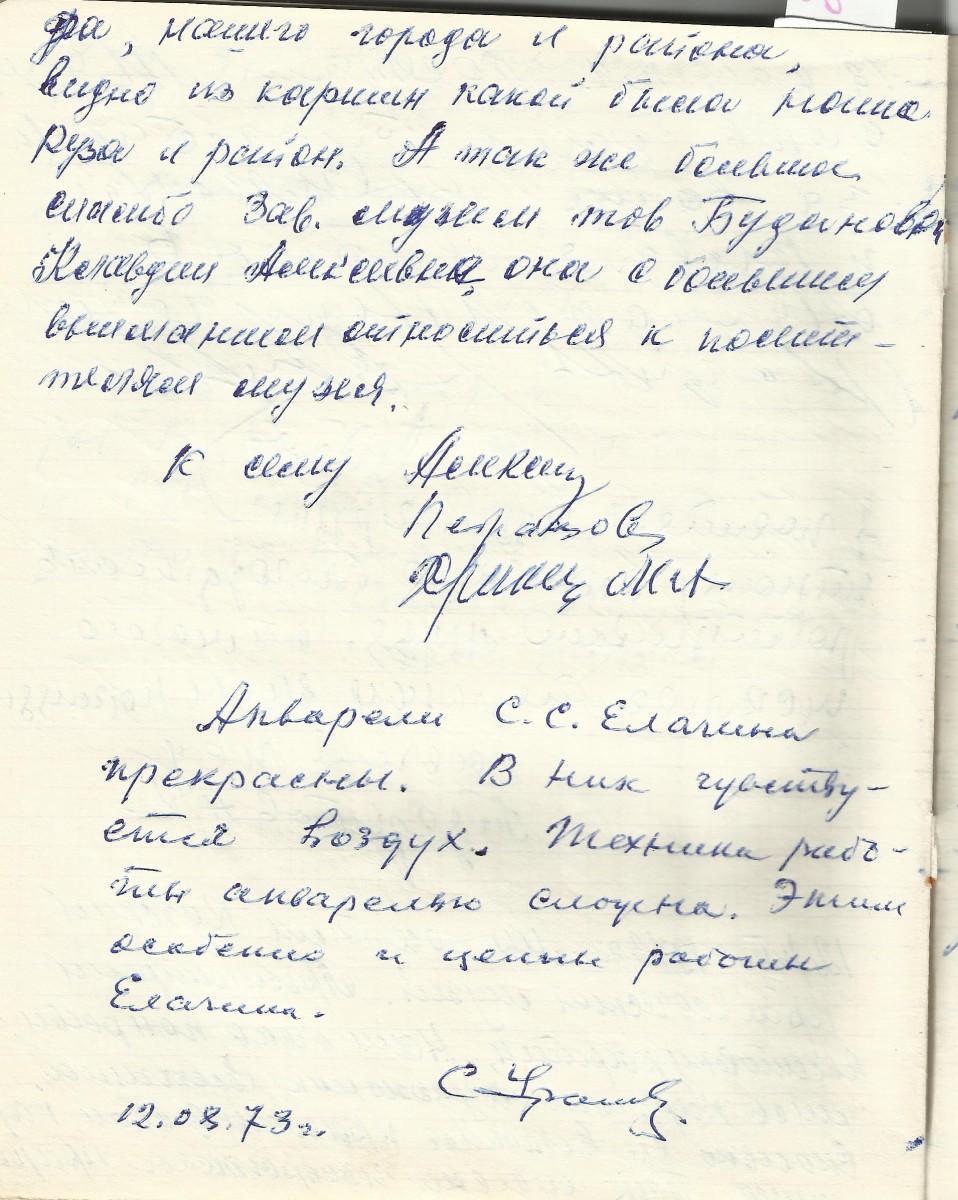 ра, нашего города и района,
видно из картин какой была наша
Руза и район. А так же большое
спасибо Зав. музеем тов Будановой
Клавдии Алексеевне, она с большим
вниманием относиться к посети-
телям музея.
К сему
Акварели С. С. Елачина
прекрасны. В них чувству-
ется воздух. Техника рабо-
ты акварелью сложна. Этим
особенно и ценны работы
Елачина.
12.08.73 г.